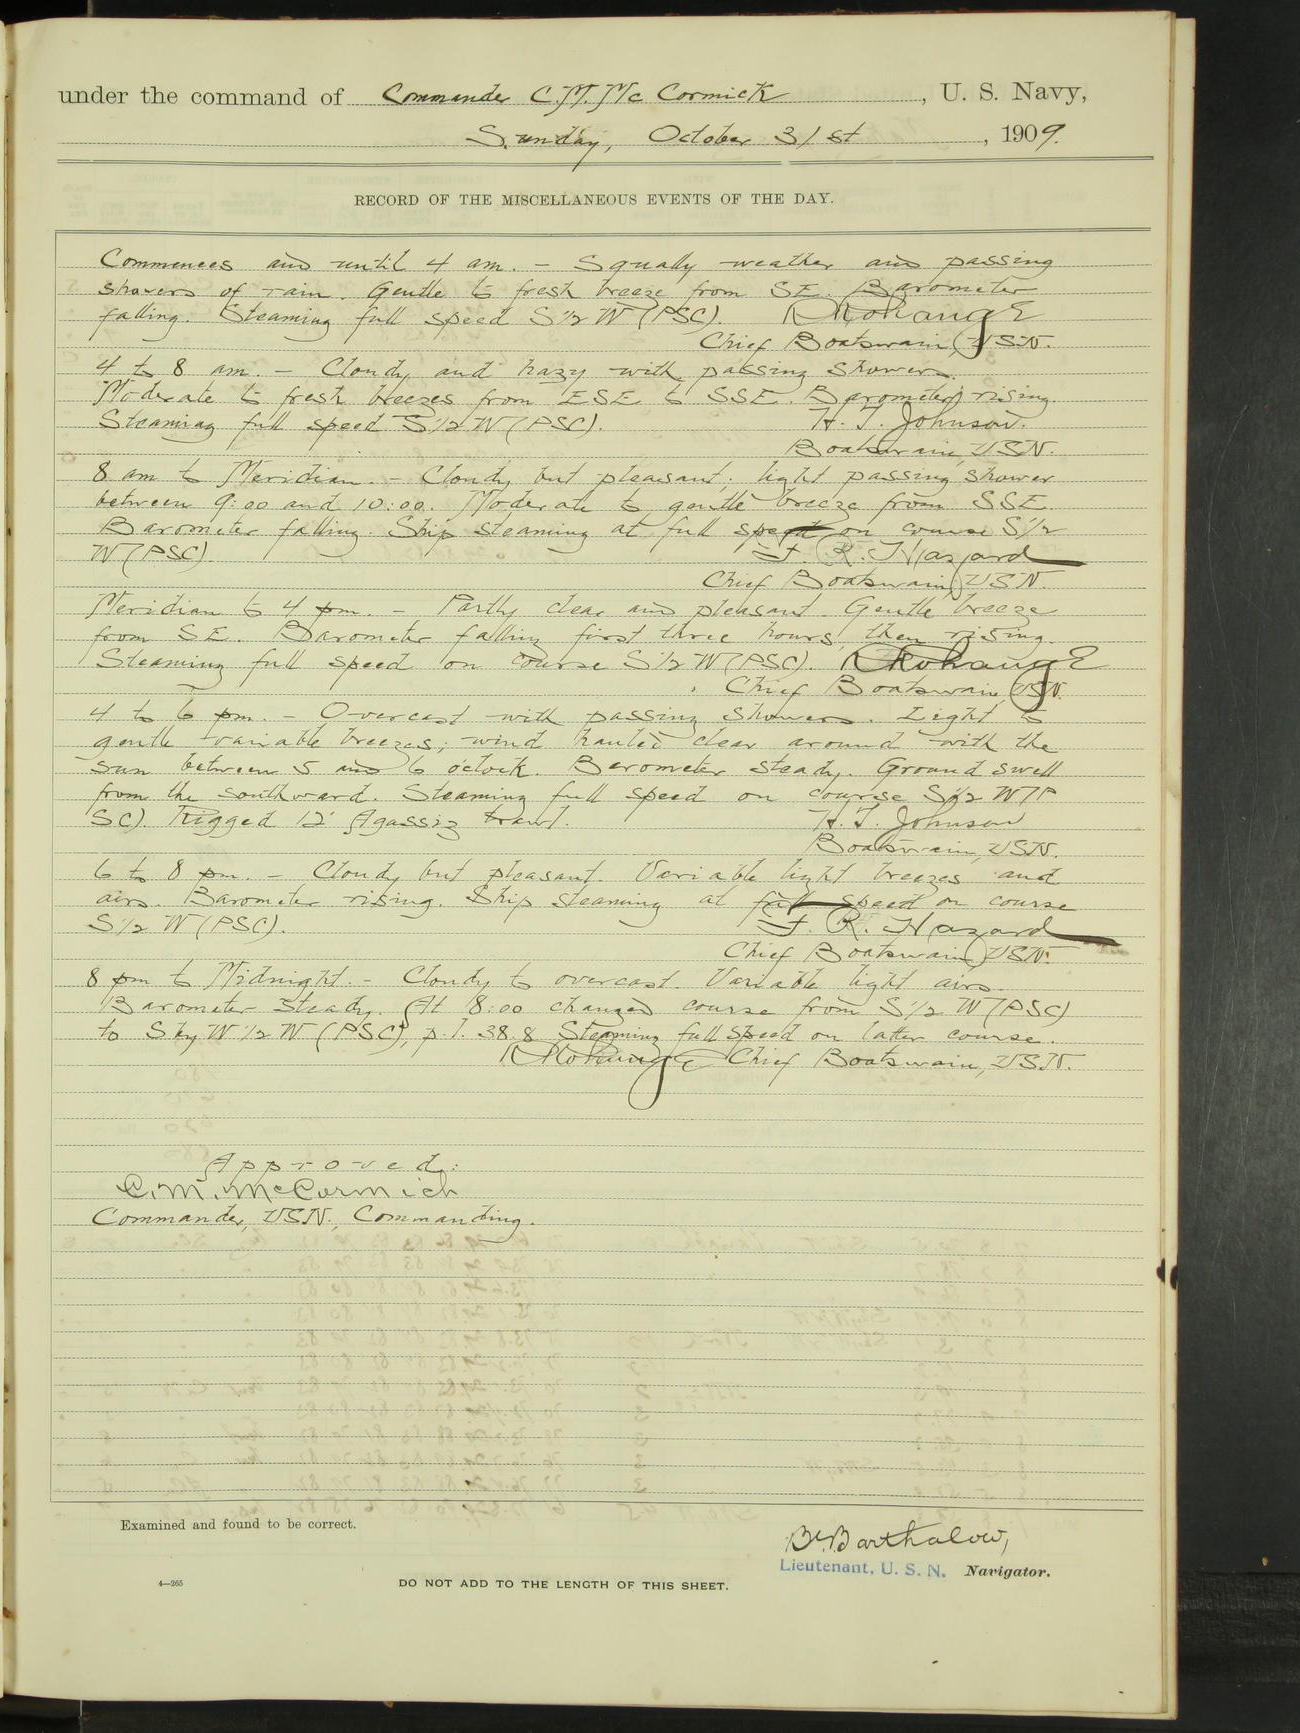 under the command of Commander C. M. Mc Cormick , U. S. Navy,
Sunday, October 31st , 1909.
RECORD OF THE MISCELLANEOUS EVENTS OF THE DAY.
Commences and until 4 am. - Squally weather and passing
showers of rain. Gentle to fresh breeze from SE. Barometer
falling. Steaming full speed S1/2 W (PSC).
Chief Boatswain, USN.
4 to 8 am. - Cloudy and hazy with passing showers.
Moderate to fresh breezes from ESE to SSE. Barometer rising.
Steaming full speed S1/2 W (PSC). H. T. Johnson.
Boatswain, USN.
8 am to Meridian. - Cloudy but pleasant; light passing shower
between 9:00 and 10:00. Moderate to gentle breeze from SSE.
Barometer falling. Ship steaming at full speed on course S1/2
W (PSC). F. R. Hazard
Chief Boatswain, USN.
Meridian to 4 pm. - Partly clear and pleasant. Gentle breeze
from SE. Barometer falling first three hours, then rising.
Steaming full speed on course S1/2 W (PSC).
Chief Boatswain, USN.
4 to 6 pm. - Overcast with passing showers. Light to
gentle variable breezes; wind hauled clear around with the
sun between 5 and 6 o'clock. Barometer steady. Ground swell
from the southward. Steaming full speed on course S1/2 W (P
SC). Rigged 12' Agassiz trawl. H. T. Johnson
Boatswain, USN.
6 to 8 pm. - Cloudy but pleasant. Variable light breezes and
airs. Barometer rising. Ship steaming at full speed on course
S1/2 W (PSC). F. R. Hazard
Chief Boatswain, USN.
8 pm to Midnight. - Cloudy to overcast. Variable light airs.
Barometer steady. At 8:00 changed course from S1/2 W (PSC)
to S by W 1/2 W (PSC), p.l. 38.8 Steaming full speed on latter course.
Chief Boatswain, USN.
Approved:
C. M. McCormick
Commander, USN., Commanding.
Examined and found to be correct.
Barthalow,
Lieutenant, U. S. N. Navigator.
4—265
DO NOT ADD TO THE LENGTH OF THIS SHEET.